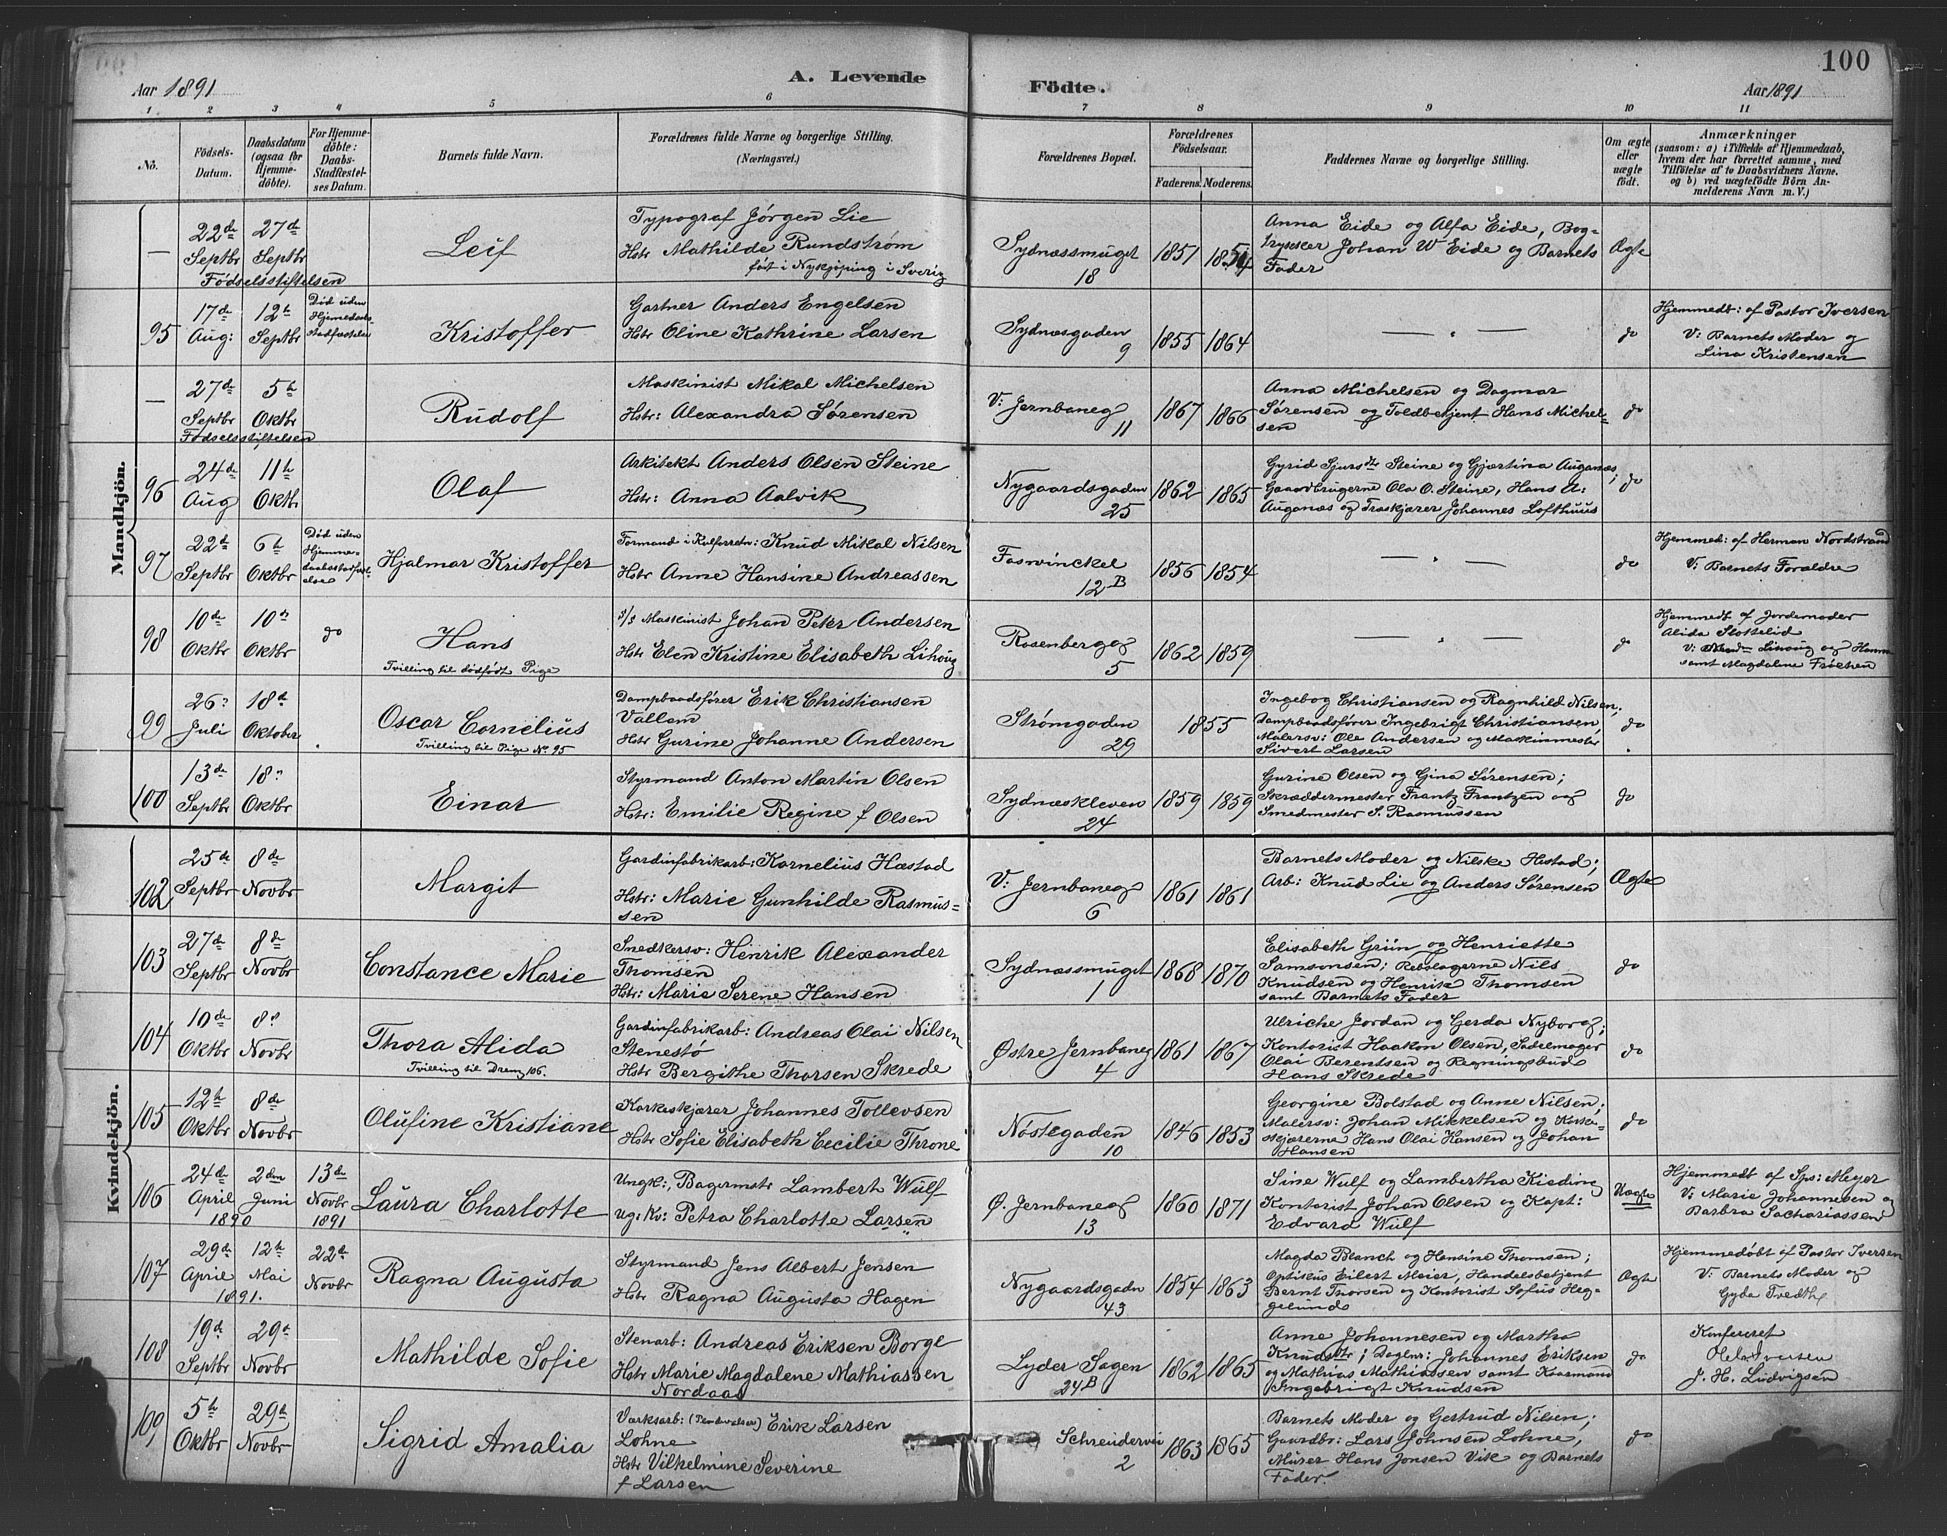 100
Aar 1891
A. Levende Födte.
Aar 1891
1 2 3 4 5 6 7 8 9 10 11
No.
Födsels-Datum.
Daabsdatum (ogsaa for Hjemmedöbte).
For Hjemmedöbte: Daabs-Stadfæstelses Datum.
Barnets fulde Navn.
Forældrenes fulde Navne og borgerlige Stilling.
(Næringsvei.)
Forældrenes Bopæl.
Forældrenes Födselsaar.
Faderens. Moderens.
Faddernes Navne og borgerlige Stilling.
Om ægte eller uægte födt.
Anmærkninger
(saasom: a) i Tilfælde af Hjemmedaab,
hvem der har forrettet samme, med
Tilföielse af to Daabsvidners Navne.
og b) ved uægtefödte Börn An-
melderens Navn m. V.)
Mandkjön.
— 22de Septbr 27de Septbr
Fødselsstiftelsen
Leif
Typograf Jørgen Lie
Hstr Mathilde Rundstrøm
født i Nykjøping i Sverig
Sydnæssmuget
18
1857 1854
Anna Eide og Alfa Eide, Bog-
trykker Johan W Eide og Barnets
Fader
Ægte
95 17de Aug: 12te Septbr
Død uden
Hjemmedaabs
Stadfæstelse
Kristoffer
Gartner Anders Engelsen
Hstr Oline Kathrine Larsen
Sydnæsgaden
9
1855 1864
— " —
do
Hjemmedt: af Pastor Iversen
V: Barnets Moder og
Lina Kristensen
— 27de Septbr 5te Oktbr
Fødselsstiftelsen
Rudolf
Maskinist Mikal Michelsen
Hstr: Alexandra Sørensen
V: Jernbaneg
11
1867 1866
Anna Michelsen og Dagmar
Sørensen og Toldbetjent Hans Michel-
sen
do
96 24de Aug 11te Oktbr
Olaf
Arkitekt Anders Olsen Steine
Hstr: Anna Aalvik
Nygaardsgaden
25
1862 1865
Gyrid Sjurs Steine og Gjertina Auganæs,
Gaardbrugerne Ola O. Steine, Hans A:
Auganæs og Træskjærer Johannes Lofthuus
do
97 22de Septbr 6te Oktbr
Død uden
Hjemme-
daabsstadfæst-
else
Hjalmar Kristoffer
Formand i Kulforretn: Knud Mikal Nilsen
Hstr Anne Hansine Andreassen
Fosvinckel
12B
1856 1854
— " —
do
Hjemmed: af Herman Nordstrand
V: Barnets Forældre
98 10de Oktbr 10de Oktbr
do
Hans
Tvilling til dødfødt Pige
Maskinist Johan Peter Andersen
Hstr Elen Kristine Elisabeth Lihoug
Rosenbergg
5
1862 1859
— " —
do
Hjemmedt af Jordemoder
Alida Slottelid
V: Lihoug og Hanna
samt Magdalene Frøchen
99 26 Juli 18d Oktober
Oscar Cornelius
Tvilling til Pige No 95
Dampbaadsfører Erik Christiansen
Vallem
Hstr Gurine Johanne Andersen
Strømgaden
29
1855
Ingebog Christiansen og Ragnhild Nilsen,
Dampbaadsfører Ingebrigt Christiansen,
Malersv: Ole Andersen og Maskinmester
Sivert Larsen
do
100 13de Septbr 18 Oktbr
Einar
Styrmand Anton Martin Olsen
Hstr: Emilie Regine f Olsen
Sydnæskleven
24
1859 1859
Gurine Olsen og Gina Sørensen;
Skræddermester Frantz Frantzen og
Smedmester S. Rasmussen
do
Kvindekjön.
102 25de Septbr 8de Novbr
Margit
Gardinfabrikarb: Kornelius Hæstad
Hstr: Marie Gunhilde Rasmus-
sen
V: Jernbaneg
6
1861 1861
Barnets Moder og Nilske Hestad;
Arb: Knud Lie og Anders Sørensen
Ægte
103 27de Septbr 8de Novbr
Constance Marie
Snedkersv: Henrik Alexander
Thomsen
Hstr: Marie Serene Hansen
Sydnæssmuget
1
1868 1870
Elisabeth Grün og Henriette
Samsonsen; Rebslagerne Nils
Knudsen og Henrik Thomsen
samt Barnets Fader
do
104 10de Oktbr 8d Novbr
Thora Alida
Tvilling til Dreng 106.
Gardinfabrikarb: Andreas Olai Nilsen
Stenestø
Hstr Bergithe Thorsen Skrede
Østre Jernbaneg
4
1861 1867
Ulriche Jordan og Gerda Nyborg;
Kontorist Haakon Olsen, Sadelmager
Olai Berentsen og Regningsbud
Hans Skrede
do
105 12te Oktbr 8de Novbr
Olufine Kristiane
Korkeskjærer Johannes Tollevsen
Hstr Sofie Elisabeth Cecilie Throne
Nøstegaden
10
1846 1853
Georgine Bolstad og Anne Nilsen;
Malersv: Johan Mikkelsen og Korke-
skjærerne Hans Olai Hansen og Johan
Hansen
do
106 24de April 1890 2den Juni 13de Novbr 1891
Laura Charlotte
Ungk:, Bagermstr Lambert Wulf
Ug: Kv: Petra Charlotte Larsen
Ø. Jernbaneg
13
1860 1871
Sine Wulf og Lambertha Kieding
Kontorist Johan Olsen og Kapt:
Edvard Wulf
Uægte
Hjemmedt af Sps: Meyer
V: Marie Johannesen og
Barbra Sachariassen
107 29de April 12te Mai 22de Novbr
1891.
Ragna Augusta
Styrmand Jens Albert Jensen
Hstr Ragna Augusta Hagen
Nygaardsgaden
43
1854 1863
Magda Blanch og Hansine Thomsen;
Optikus Eilert Meier, Handelsbetjent
Bernt Thorsen og Kontorist Sofus Heg-
gelunds
Ægte
Hjemmedøbt af Pastor Iversen
V: Barnets Moder og
Gyda Tvedth
108 19d Septbr 29d Novbr
Mathilde Sofie
Stenarb: Andreas Eriksen Borge
Hstr Marie Magdalene Mathiassen
Nordaas
Lyder Sagen
24B
1862 1865
Anne Johannesen og Martha
Knudsdtr; Dagleur: Johannes Eriksen
og Mathias Mathiassen samt Kaarmand
Ingebrigt Knudsen
do
Konfereret
J. H. Ludvigsen
109, 5te Oktbr 29d Novbr
Sigrid Amalia
Værksarb: Erik Larsen
Lohne
Hstr Vilhelmine Severine
f Larsen
Schreudervei
2
1863 1865
Barnets Moder og Gertrud Nilsen;
Gaardbr: Lars Johnsen Lohne,
Murer Hans Jonsen Vik og Barnets
Fader.
do